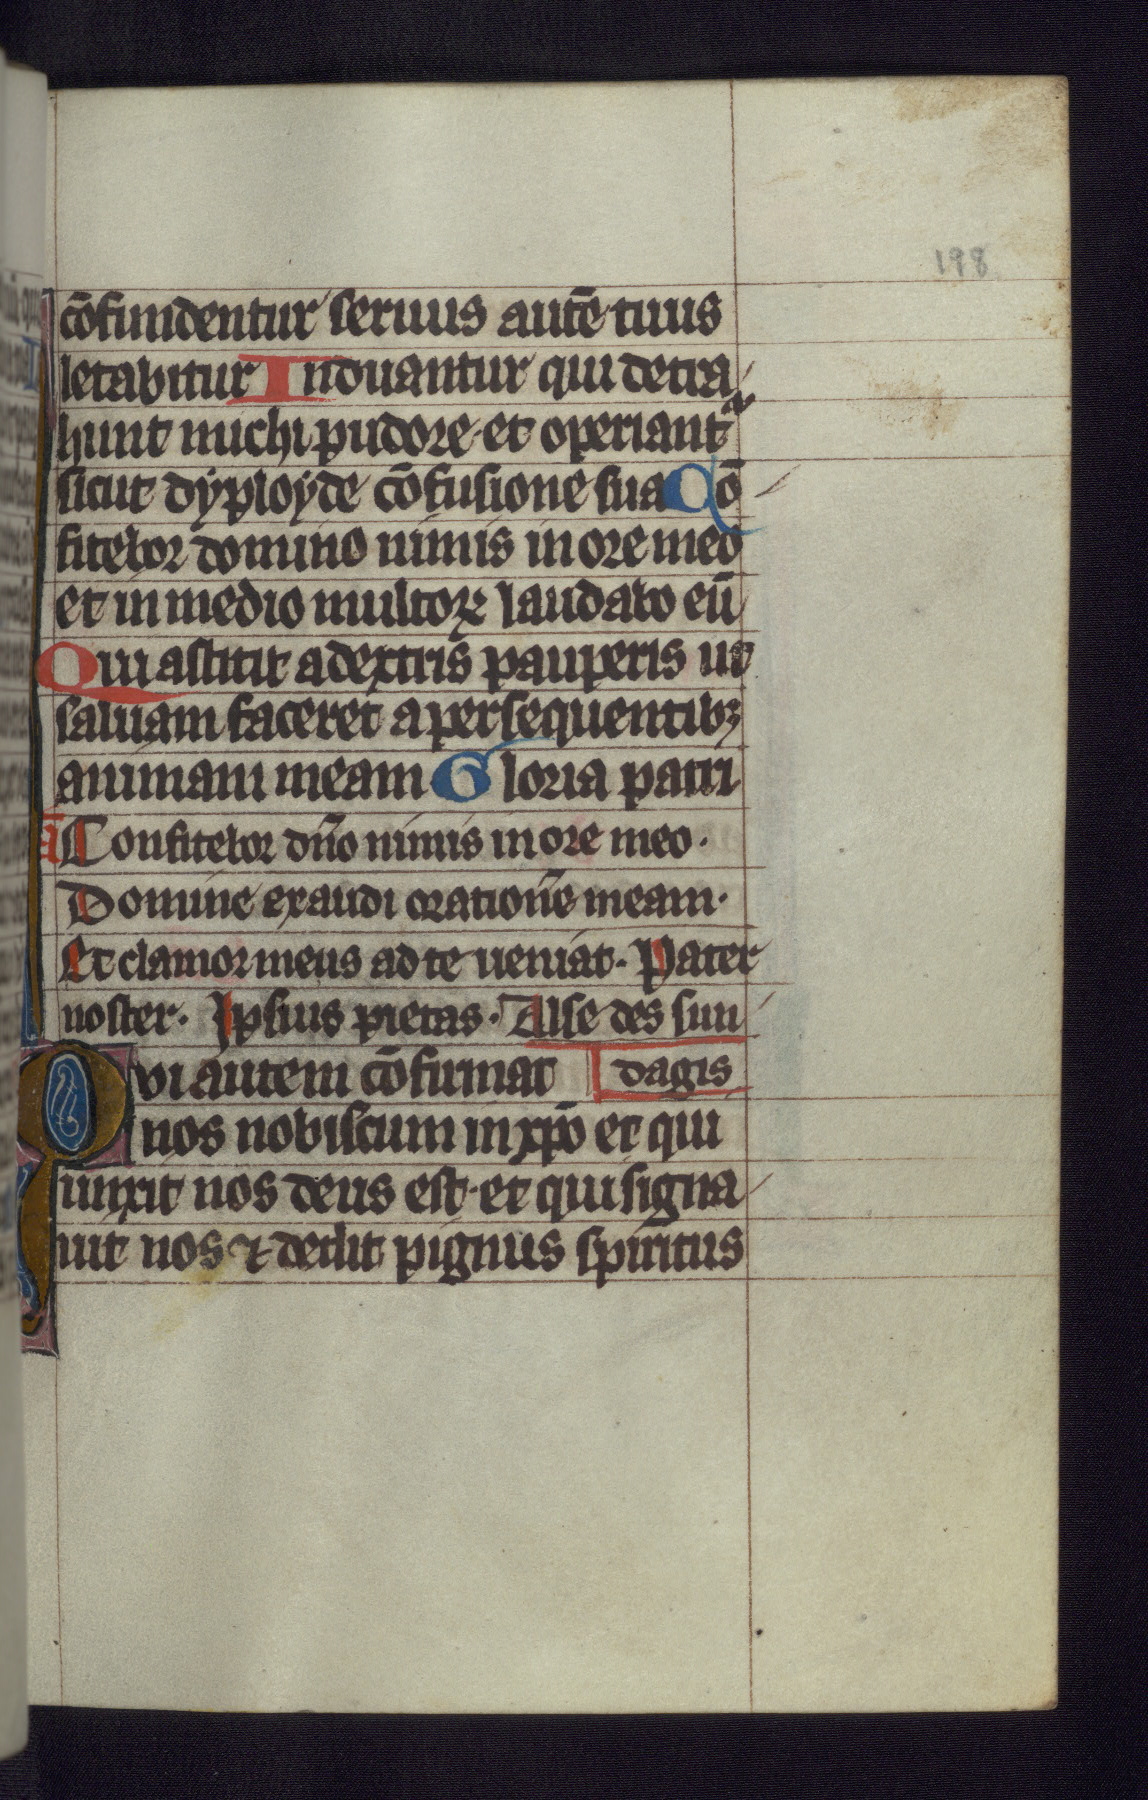 198
cōfundentur seruus autē tuus
letabitur Induantur qui detra
hunt michi pudore et operiantᷣ
sicut dyployde cōfusione sua Cō
fitebor domino nimis in ore meo
et in medio multoꝝ laudabo eū
Qui astitit a dextris pauperis ut
saluam faceret a persequentibꝫ
animam meam Gloria patri
ā Confitebor dn̄o nimis in ore meo·
Domine exaudi oration̄e meam·
Et clamor meus ad te ueniat· Pater
noster· Ipsius pietas· Alse des sun
Qvi autem cōfirmat dagis
nos nobiscum in xp̄o et qui
unxit nos deus est· et qui signa
uit nos ⁊ dedit pignus spiritus